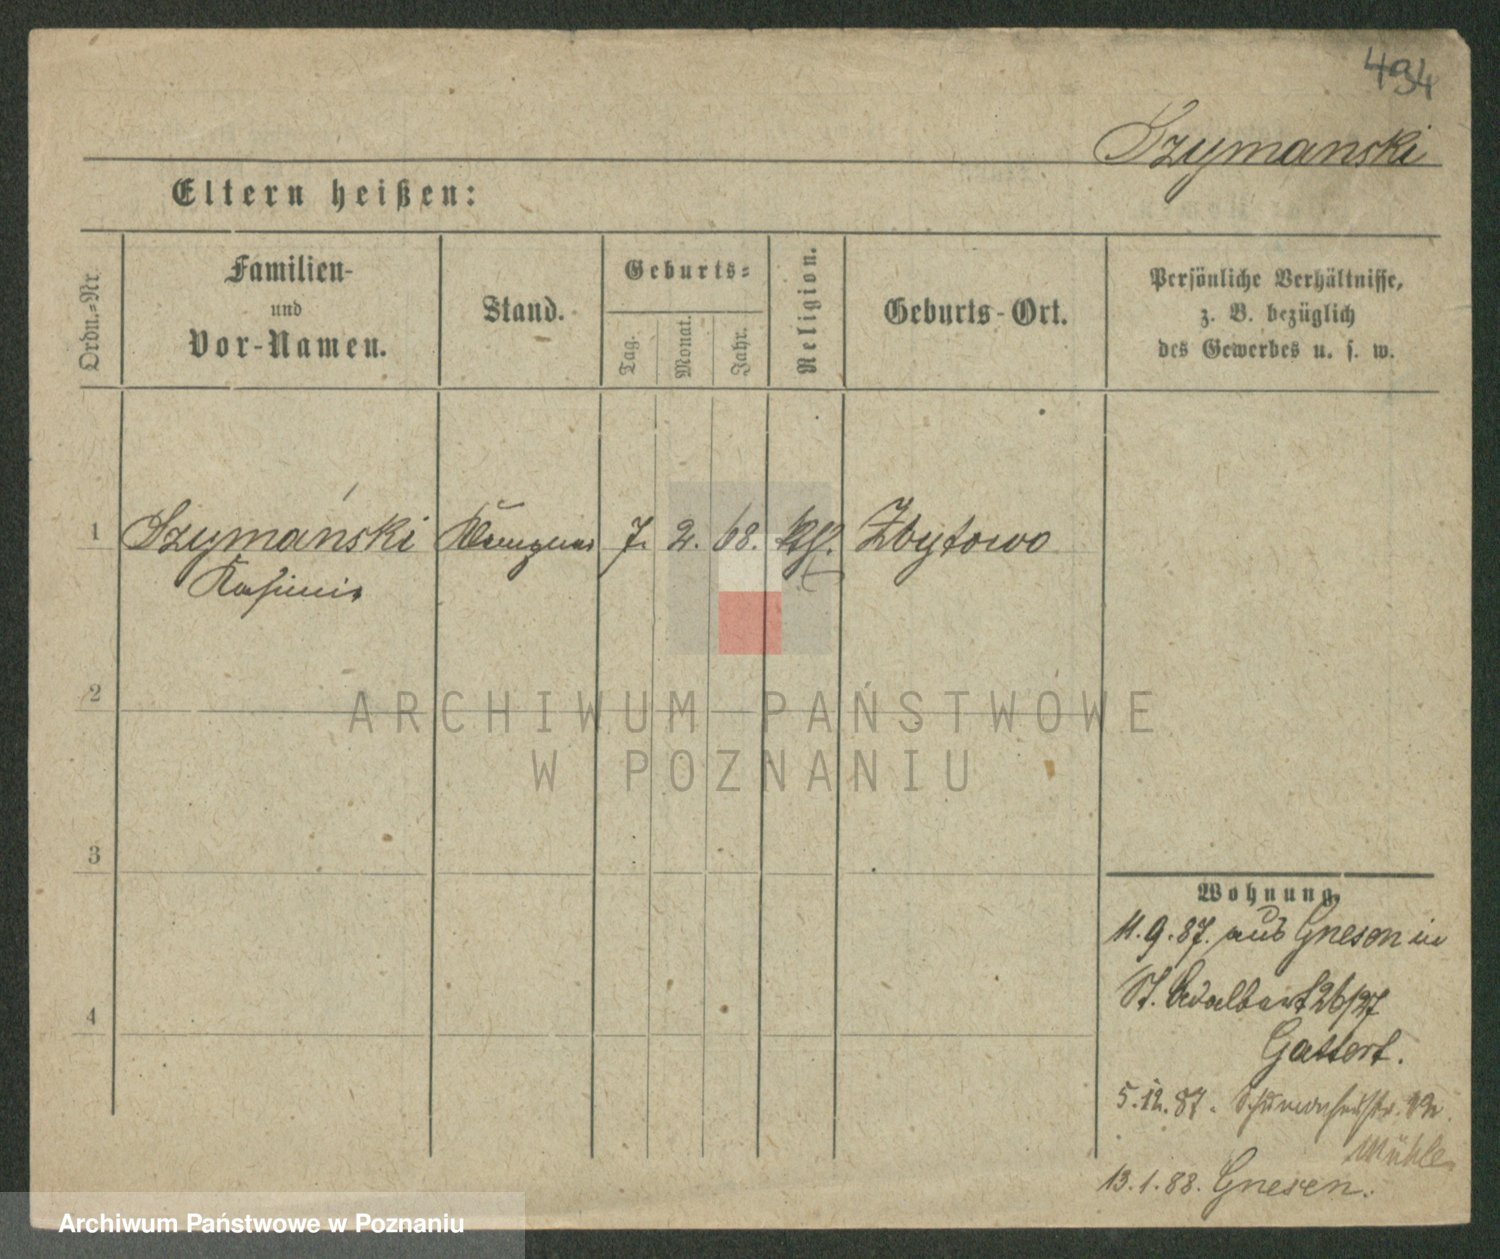 494
Szymanski
Eltern heißen:
Ordn.-Nr.
Familien-
und
Vor-Namen.
Stand.
Geburts-
Tag.
Monat.
Jahr.
Religion.
Geburts-Ort.
Persönliche Verhältnisse,
z. B. bezüglich
des Gewerbes u. s. w.
1 Szymański 7. 2. 68. kth. Zbytowo
Kasimir
2
3
4
ARCHIWUM PAŃSTWOWE
W POZNANIU
Wohnung.
11.9.87. aus Gnesen in
St. Adalbert 26/27
Gattert.
5.12.87.
Mühle
13.1.88. Gnesen.
Archiwum Państwowe w Poznaniu